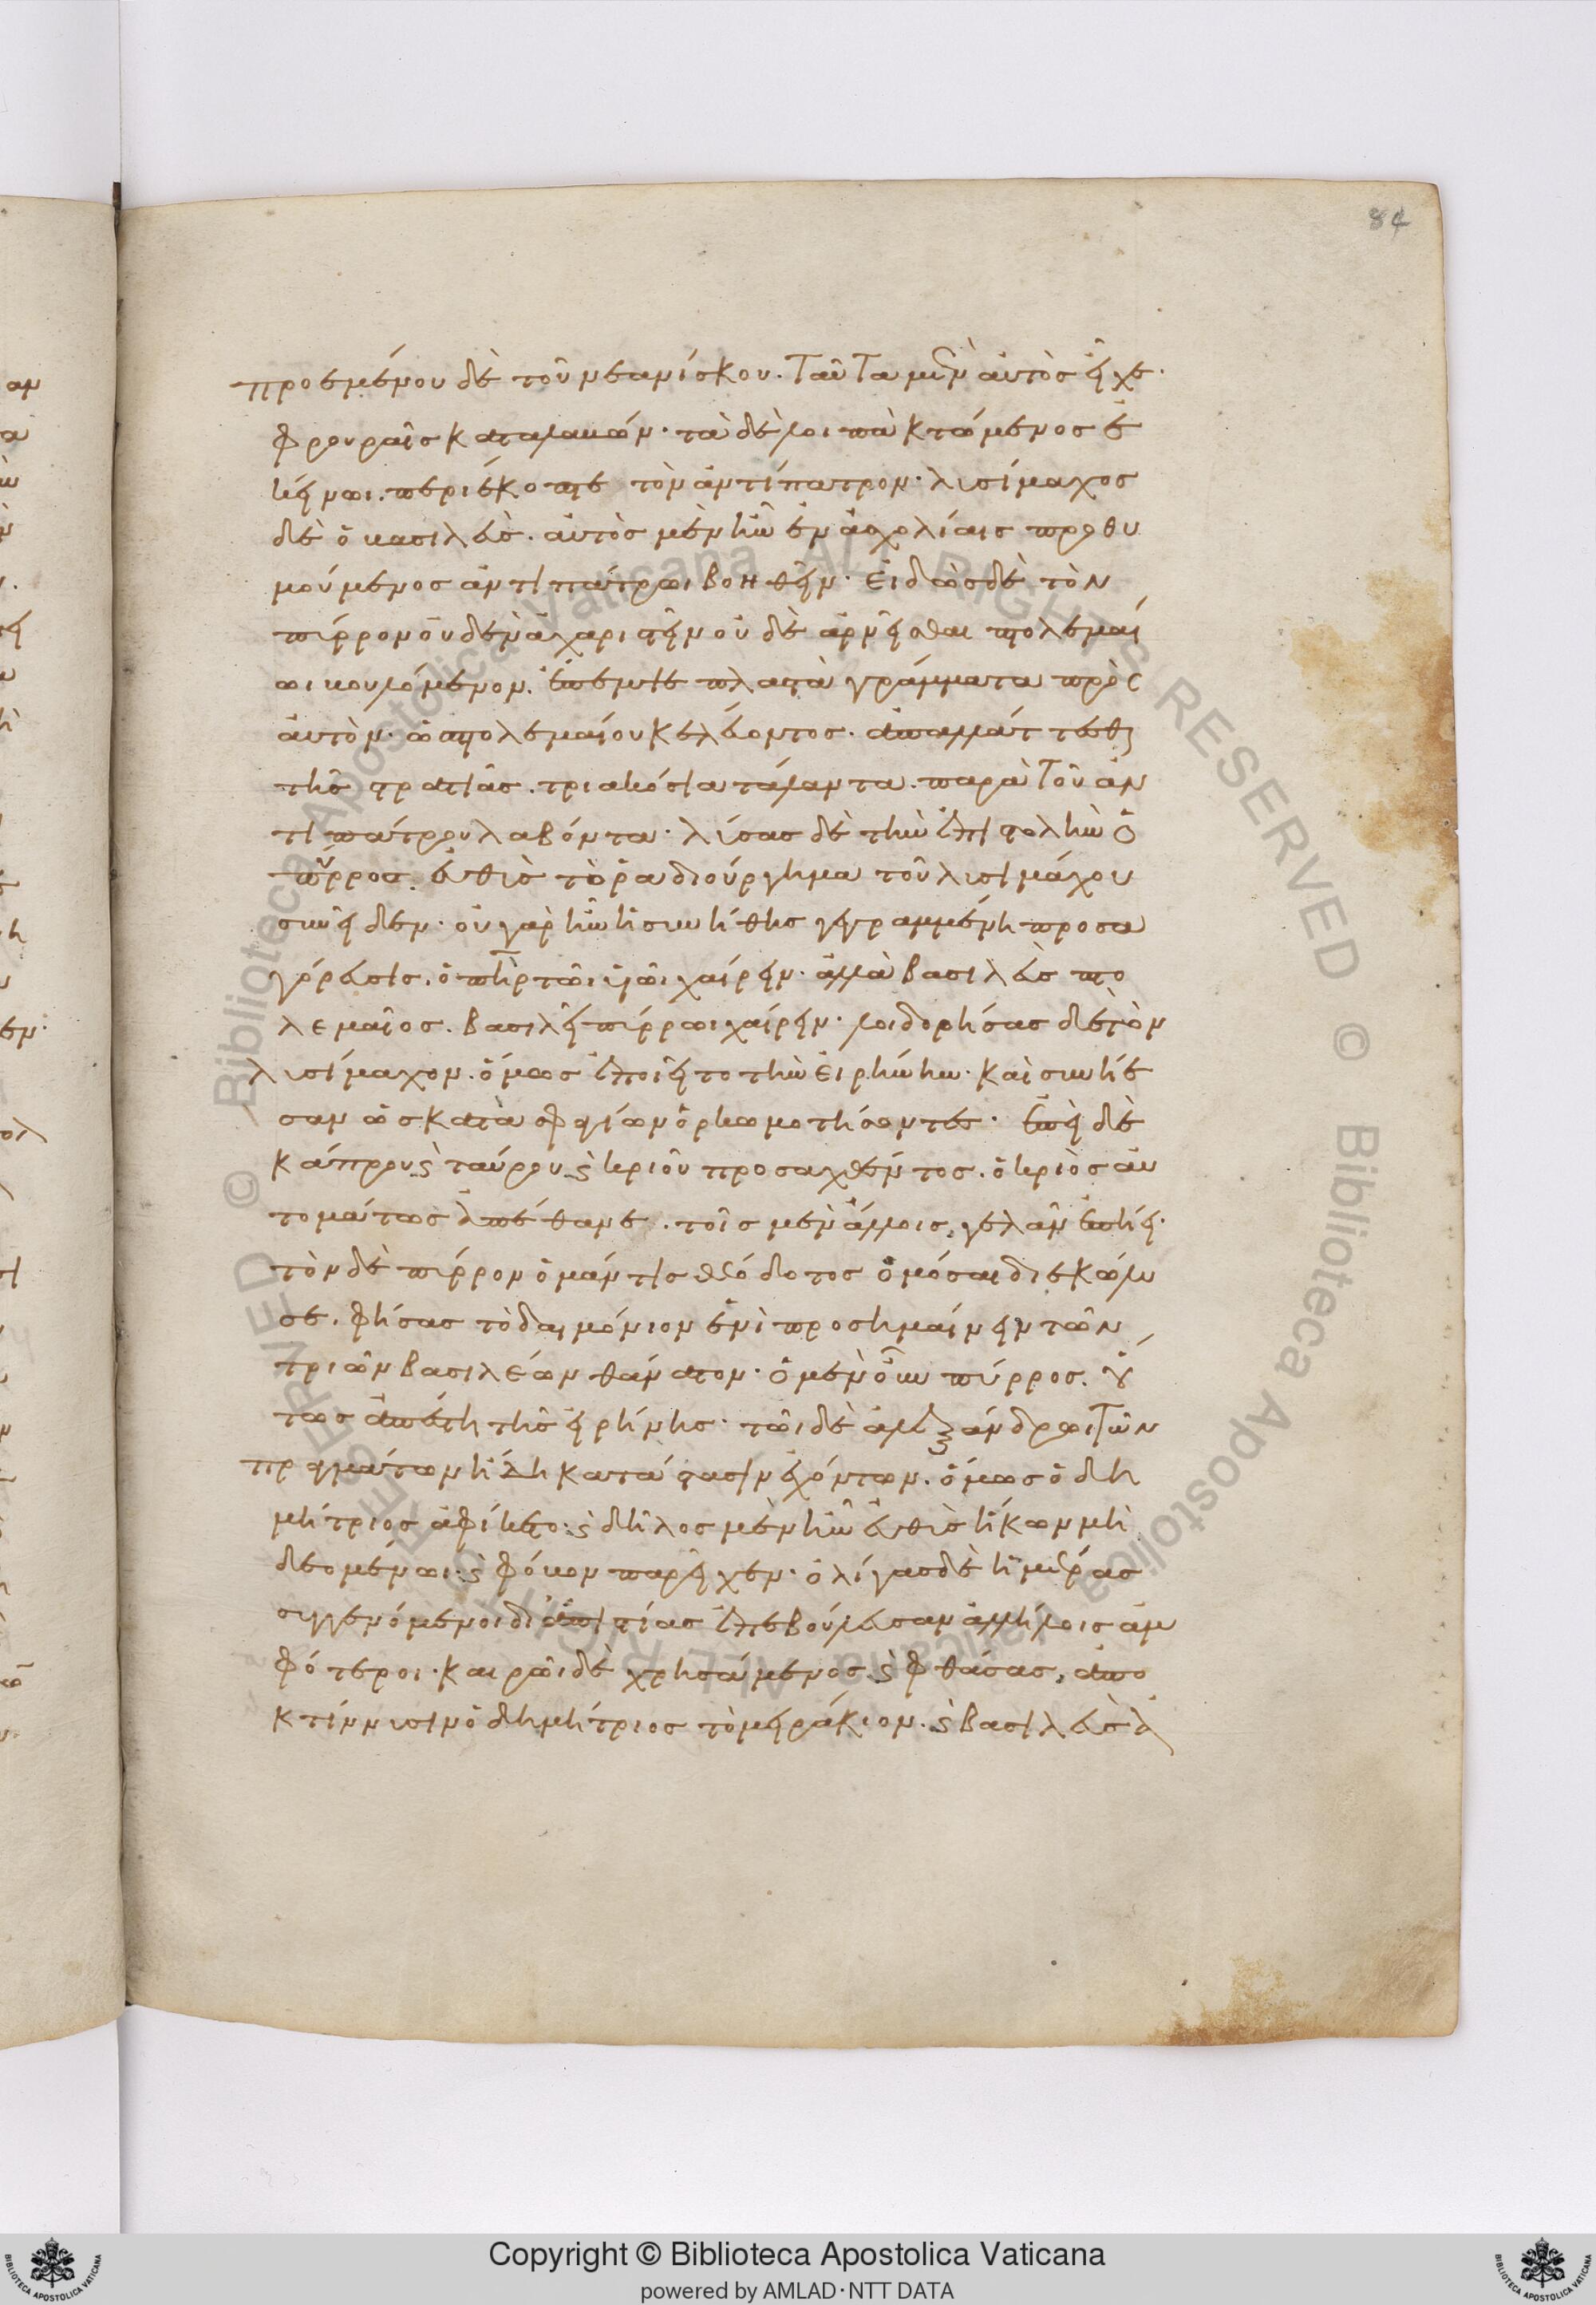 84
προεμένου δὲ τοῦ νεανίσκου. ταῦτα μὲν αὐτὸς εἶχε.
φρουραῖς καταλαβών· τὰ δὲ λοιπὰ κτώμενος ἐ
κείνωι. περιέκοπτε τὸν ἀντίπατρον. λυσίμαχος
δὲ ὁ βασιλεὺς. αὐτὸς μὲν ἦν ἐν ἀσχολίαις προθυ
μούμενος ἀντιπάτρωι βοηθεῖν. εἰδὼς δὲ τὸν
πύρρον οὐδὲν ἀχαριστεῖν οὐδὲ ἀρνεῖσθαι πτολεμαί
ωι βουλόμενον. ἔπεμψε πλαστὰ γράμματα πρὸς
αὐτὸν. ὡς πτολεμαίου κελεύοντος. ἀπαλλάττεσθ
τῆς στρατιᾶς. τριακόσια τάλαντα. παρὰ τοῦ ἀν
τιπάτρου λαβόντα· λύσας δὲ τὴν ἐπιστολὴν ὁ
πύρρος. εὐθὺς τὸ ῥαδιούργημα τοῦ λυσιμάχου
συνεῖδεν. οὐ γὰρ ἦν ἡ συνήθης γεγραμμένη προσα
γόρευσις. ὁ π̅η̅ρ τῶι υἱῶι χαίρειν. ἀλλὰ βασιλεὺς πτο
λεμαῖος. βασιλεῖ πύρρωι χαίρειν. λοιδορήσας δὲ τὸν
λυσίμαχον. ὅμως ἐποιεῖτο τὴν εἰρήνην. καὶ συνῄε
σαν ὡς κατὰ σφαγίων ὁρκωμοτήσοντες. ἐπεὶ δὲ
κάπρου ϛ̀ ταύρου ϛ̀ κριοῦ προσαχθέντος. ὁ κριὸς αὐ
τομάτως ἀπέθανε. τοῖς μὲν ἄλλοις. γελᾶν ἐπῄει.
τὸν δὲ πύρρον ὁ μάντις θεόδοτος ὀμόσαι διεκώλυ
σε. φήσας τὸ δαιμόνιον ἑνὶ προσημαίνειν τῶν
τριῶν βασιλέων θάνατον. ὁ μὲν οὖν πύρρος. οὕ
τως ἀπέστη τῆς εἰρήνης. τῶι δὲ ἀλεξάνδρωι τῶν
πραγμάτων ἤδη κατάστασιν ἐχόντων. ὅμως ὁ δη
μήτριος ἀφίκετο. ϛ̀ δῆλος μὲν ἦν εὐθὺς ἥκων μὴ
δεομένωι. ϛ̀ φόβον παρεῖχεν. ὀλίγας δὲ ἡμέρας
συγγενόμενοι δι ἀπιστίας ἐπεβούλευσαν ἀλλήλοις ἀμ
φότεροι. καιρῶι δὲ χρησάμενος ϛ̀ φθάσας. ἀπο
κτίννυσιν ὁ δημήτριος τὸ μειράκιον. ϛ̀ βασιλεὺς ἀ
Copyright © Biblioteca Apostolica Vaticana
powered by AMLAD·NTT DATA